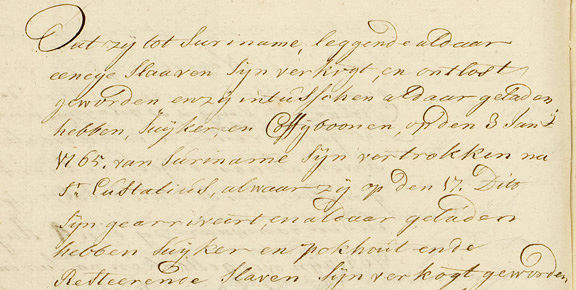 Dat zij tot Suriname, leggende aldaar
eenige Slaaven Sijn verkogt, en ontlost
geworden en zij intusschen aldaar geladen
hebben, Suijker, en Coffijboonen, op den 3 Janij
1765. van Suriname Sijn vertrokken na
St. Eustatius, alwaar zij op den 17. Dito
Sijn gearriveert, en aldaar geladen
hebben Suijker en pokhout ende
Resteerende Slaven Sijn verkogt geworden,